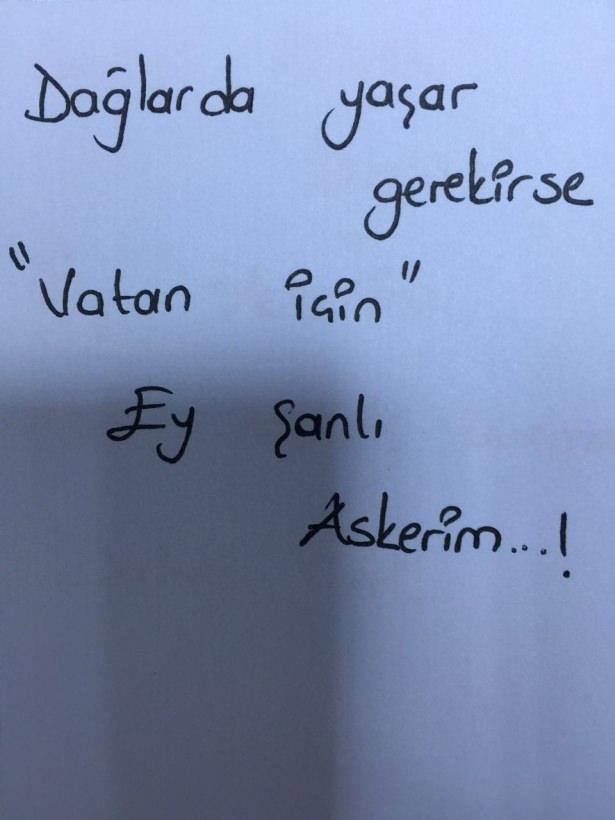 Dağlarda yaşar
gerekirse
"Vatan için"
Ey Şanlı
Askerim...!